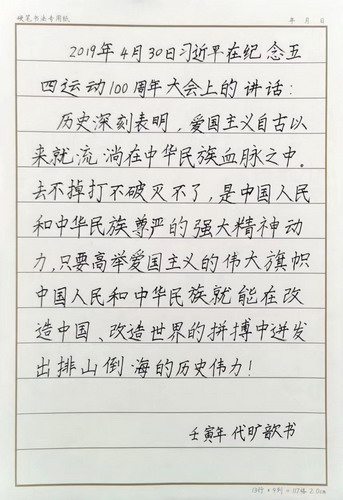 硬笔书法专用纸
年 月 日
2019年4月30日习近早在纪念五
四运动100周年大会上的讲话:
历史深刻表明,爱国主义自古以
来就流淌在中华民族血脉之中。
去不掉打不破灭不了,是中国人民
和中华民族尊严的强大精神动
力,只要高举爱国主义的伟大旗帜
中国人民和中华民族就能在改
造中国、改造世界的拼搏中迸发
出排山倒海的历史伟力!
壬寅年 代旷歆书
13行*9列=117格 2.0cm